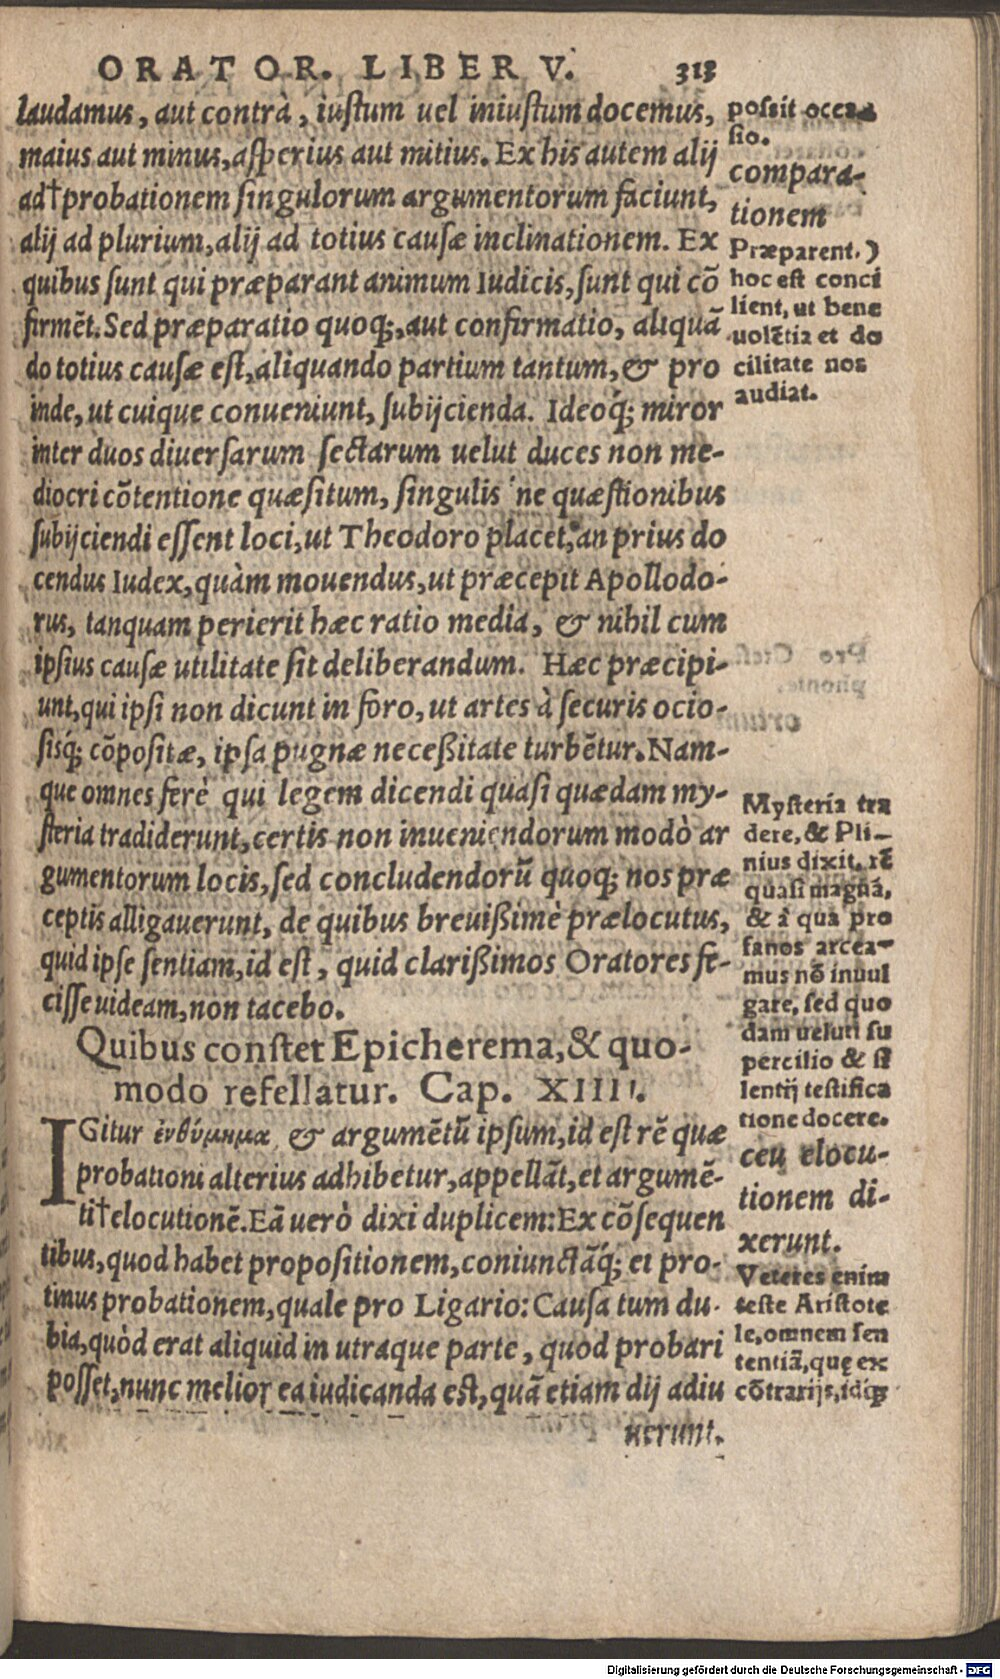 ORATOR. LIBER V. 313
laudamus, aut contrà, iustum uel iniustum docemus,
maius aut minus, asperius aut mitius. Ex his autem alij
ad†probationem singulorum argumentorum faciunt,
alij ad plurium, alij ad totius causæ inclinationem. Ex
quibus sunt qui præparant animum Iudicis, sunt qui cō
firmēt. Sed præparatio quoq;, aut confirmatio, aliquā
do totius causæ est, aliquando partium tantum, & pro
inde, ut cuique conueniunt, subijcienda. Ideoq́; miror
inter duos diuersarum sectarum uelut duces non me-
diocri cōtentione quæsitum, singulis 'ne quæstionibus
subijciendi essent loci, ut Theodoro placet, an prius do
cendus Iudex, quàm mouendus, ut præcepit Apollodo-
rus, tanquam perierit hæc ratio media, & nihil cum
ipsius causæ utilitate sit deliberandum. Hæc præcipi-
unt, qui ipsi non dicunt in foro, ut artes à securis ocio-
sisq́; cōpositæ, ipsa pugnæ neceßitate turbētur. Nam-
que omnes ferè qui legem dicendi quasi quædam my-
steria tradiderunt, certis non inueniendorum modò ar
gumentorum locis, sed concludendorū quoq; nos præ
ceptis alligauerunt, de quibus breuißimè prælocutus,
quid ipse sentiam, id est, quid clarißimos Oratores fe-
cisse uideam, non tacebo.
Quibus constet Epicherema, & quo-
modo refellatur. Cap. XIIII.
IGitur ἐνθύμημα & argumētū ipsum, id est rē quæ
probationi alterius adhibetur, appellāt, et argumē-
ti†elocutionē. Eā uerò dixi duplicem: Ex cōsequen
tibus, quod habet propositionem, coniunctāq́; ei pro-
tinus probationem, quale pro Ligario: Causa tum du-
bia, quòd erat aliquid in utraque parte, quod probari
posset, nunc melior ea iudicanda est, quā etiam dij adiu
uerunt.
possit occa-
sio.
compara-
tionem
Præparent.)
hoc est conci
lient, ut bene
uolētia et do
cilitate nos
audiat.
Mysteria tra
dere, & Pli-
nius dixit, rē
quasi magnā,
& à qua pro
fanos arcea-
mus nō inuul
gare, sed quo
dam ueluti su
percilio & si
lentij testifica
tione docere.
ceu elocu-
tionem di-
xerunt.
Veteres enim
teste Aristote
le, omnem sen
tentiā, quę ex
cōtrarijs, idq́;